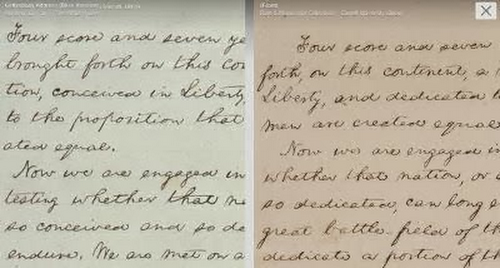 Four score and seven ye
brought forth on this con
tion, conceived in Liberty,
to the proposition that
ated equal.
Now we are engaged in
testing whether that n
so conceived and so de
endure. We are met on a
Four score and seven
forth, on this continent, a
Liberty, and dedicated t
men are created equal
Now we are engaged in
whether that nation, or
so dedicated, can long e
great battle-field of th
dedicate a portion of th